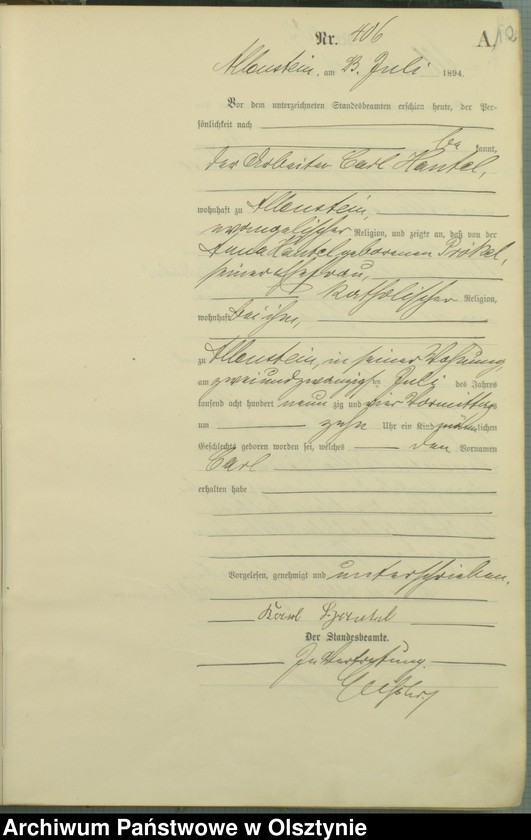 Nr. 406
A. 12
Allenstein, am 23. Juli 1894.
Vor dem unterzeichneten Standesbeamten erschien heute, der Per-
sönlichkeit nach
bekannt,
der Arbeiter Carl Hantel,
wohnhaft zu Allenstein,
evangelischer Religion, und zeigte an, daß von der
Anna Hantel geborenen
seiner Ehefrau,
katholischer Religion,
wohnhaft bei ihm,
zu Allenstein, in seiner Wohnung,
am zweiundzwanzigsten Juli des Jahres
tausend acht hundert neunzig und vier Vormittags
um zehn Uhr ein Kind männlichen
Geschlechts geboren worden sei, welches den Vornamen
Carl
erhalten habe
Vorgelesen, genehmigt und unterschrieben.
Karl Hantel
Der Standesbeamte.
In Vertretung.
Archiwum Państwowe w Olsztynie